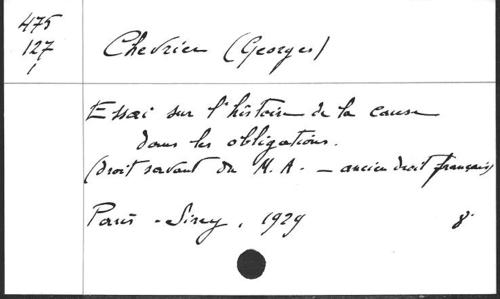 475
127
1
Chevrier (Georges)
Essai sur l'histoire de la cause
dans les obligations.
(droit savant du M. A. - ancien droit français)
Paris - Sirey, 1929 8°